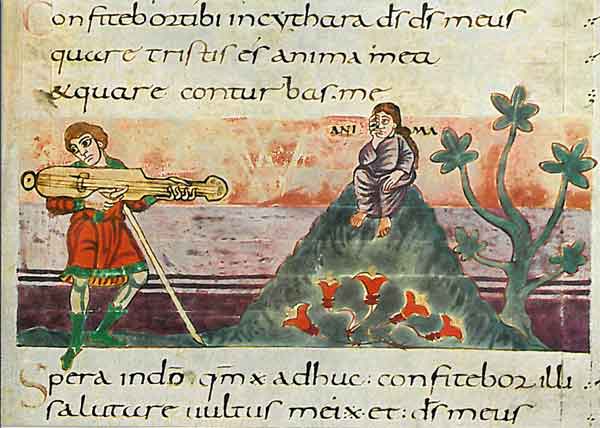 Confitebor tibi in cythara ds ds meus
quare tristis es anima mea
& quare conturbas me
ANIMA
Spera in dō qm x adhuc: confitebor illi
salutare uultus mei x et: ds meus